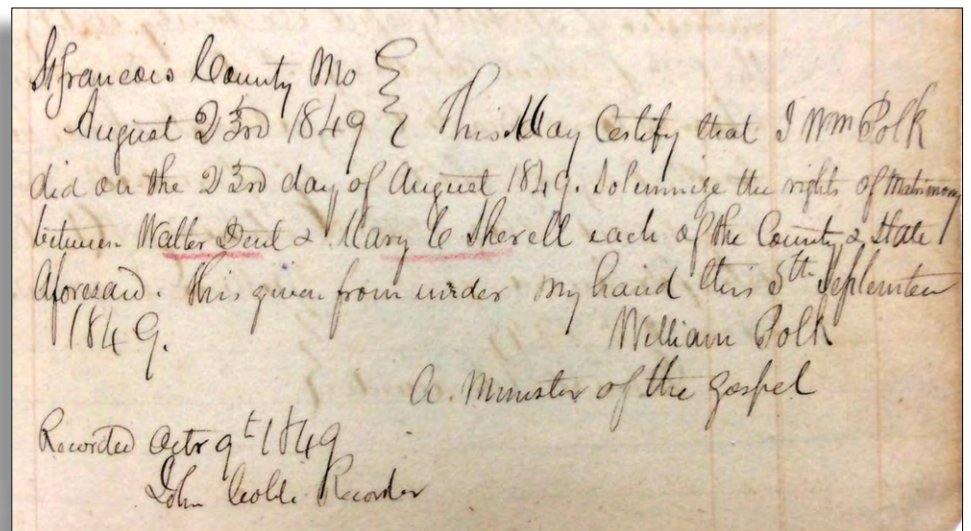 St francois County Mo
August 23rd 1849 This May Certify that I Wm Polk
did on the 23rd day of August 1849. Solemnize the rights of Matrimony
between Walter Dent & Mary C Sherell each of the County & State
aforesaid. This given from under my hand this 5th September
1849.
William Polk
A. Minister of the gospel
Recorded Octr 9t 1849
John Recorder